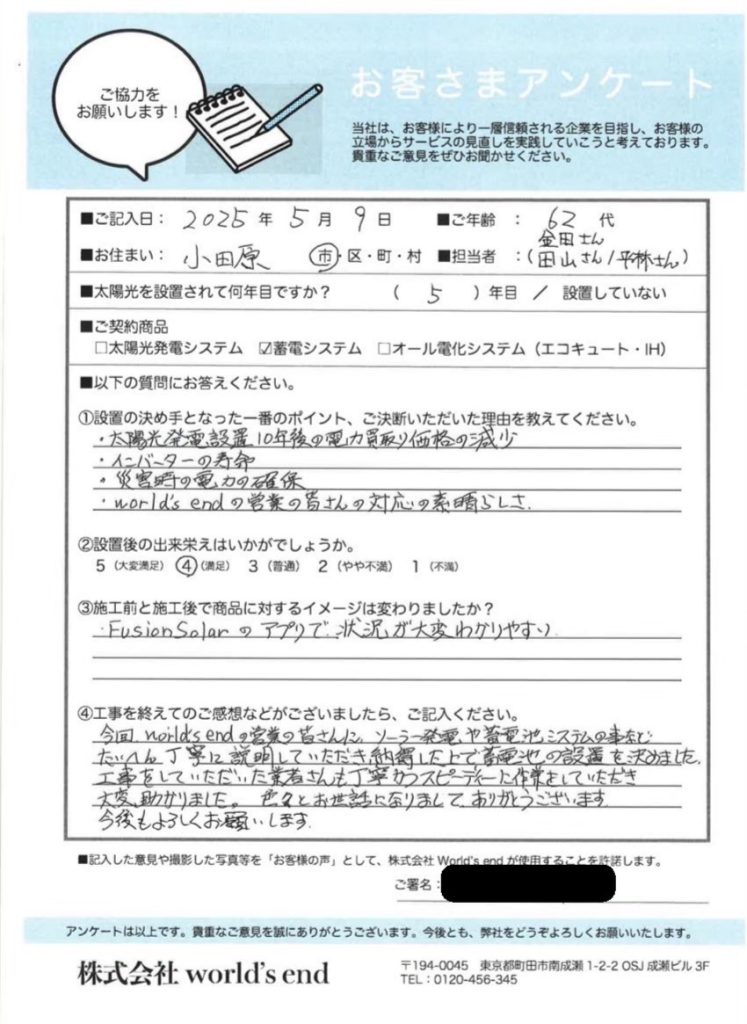 ご協力を
お願いします！
お客さまアンケート
当社は、お客様により一層信頼される企業を目指し、お客様の
立場からサービスの見直しを実践していこうと考えております。
貴重なご意見をぜひお聞かせください。
■ご記入日： 2025 年 5 月 9 日 ■ご年齢 ： 62 代
金田さん
■お住まい： 小田原 市・区・町・村 ■担当者 ：(田山さん/平林さん)
■太陽光を設置されて何年目ですか？ （ 5 ）年目 / 設置していない
■ご契約商品
□太陽光発電システム ☑蓄電システム □オール電化システム（エコキュート・IH）
■以下の質問にお答えください。
①設置の決め手となった一番のポイント、ご決断いただいた理由を教えてください。
・太陽光発電設置10年後の電力買取り価格の減少
・インバーターの寿命
・災害時の電力の確保
・world's endの営業の皆さんの対応の素晴らしさ.
②設置後の出来栄えはいかがでしょうか。
5（大変満足） 4（満足） 3（普通） 2（やや不満） 1（不満）
③施工前と施工後で商品に対するイメージは変わりましたか？
・FusionSolarのアプリで、状況が大変わかりやすい
④工事を終えてのご感想などがございましたら、ご記入ください。
今回world's endの営業の皆さんに、ソーラー発電や蓄電池システムの事など
たいへん丁寧に説明していただき納得した上で蓄電池の設置を決めました.
工事をしていただいた業者さんも丁寧かつスピーディーに作業をしていただき
大変助かりました。色々とお世話になりまして、ありがとうございます.
今後もよろしくお願いします.
■記入した意見や撮影した写真等を「お客様の声」として、株式会社 World's end が使用することを許諾します。
ご署名：
アンケートは以上です。貴重なご意見を誠にありがとうございます。今後とも、弊社をどうぞよろしくお願いいたします。
株式会社 world's end
〒194-0045 東京都町田市南成瀬 1-2-2 OSJ 成瀬ビル 3F
TEL：0120-456-345